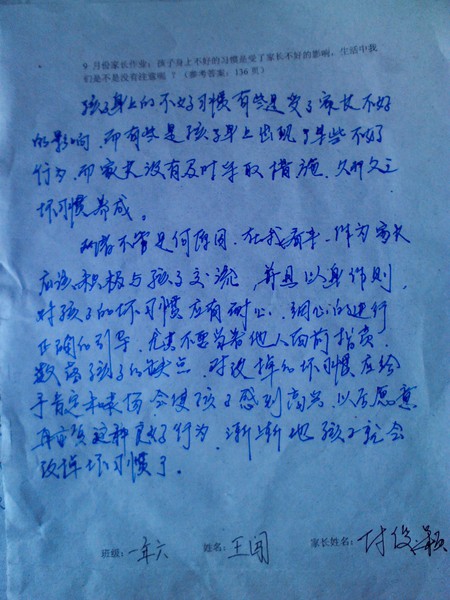 9 月份家长作业：孩子身上不好的习惯是受了家长不好的影响，生活中我
们是不是没有注意呢？（参考答案：136 页）
孩子身上的不好习惯有些是受了家长不好
的影响，而有些是孩子身上出现了某些不好
行为，而家长没有及时采取措施，久而久之
坏习惯养成。
不管是何原因，在我看来，作为家长
应该积极与孩子交流，并且以身作则，
对孩子的坏习惯应有耐心、细心的进行
正确的引导，尤其不要当着他人面前指责、
数落孩子的缺点，对改掉的坏习惯应给
予肯定和表扬会使孩子感到高兴，以后愿意
这种良好行为，渐渐地孩子就会
改掉坏习惯了。
班级：一年六 姓名：王闯 家长姓名：付俊颖